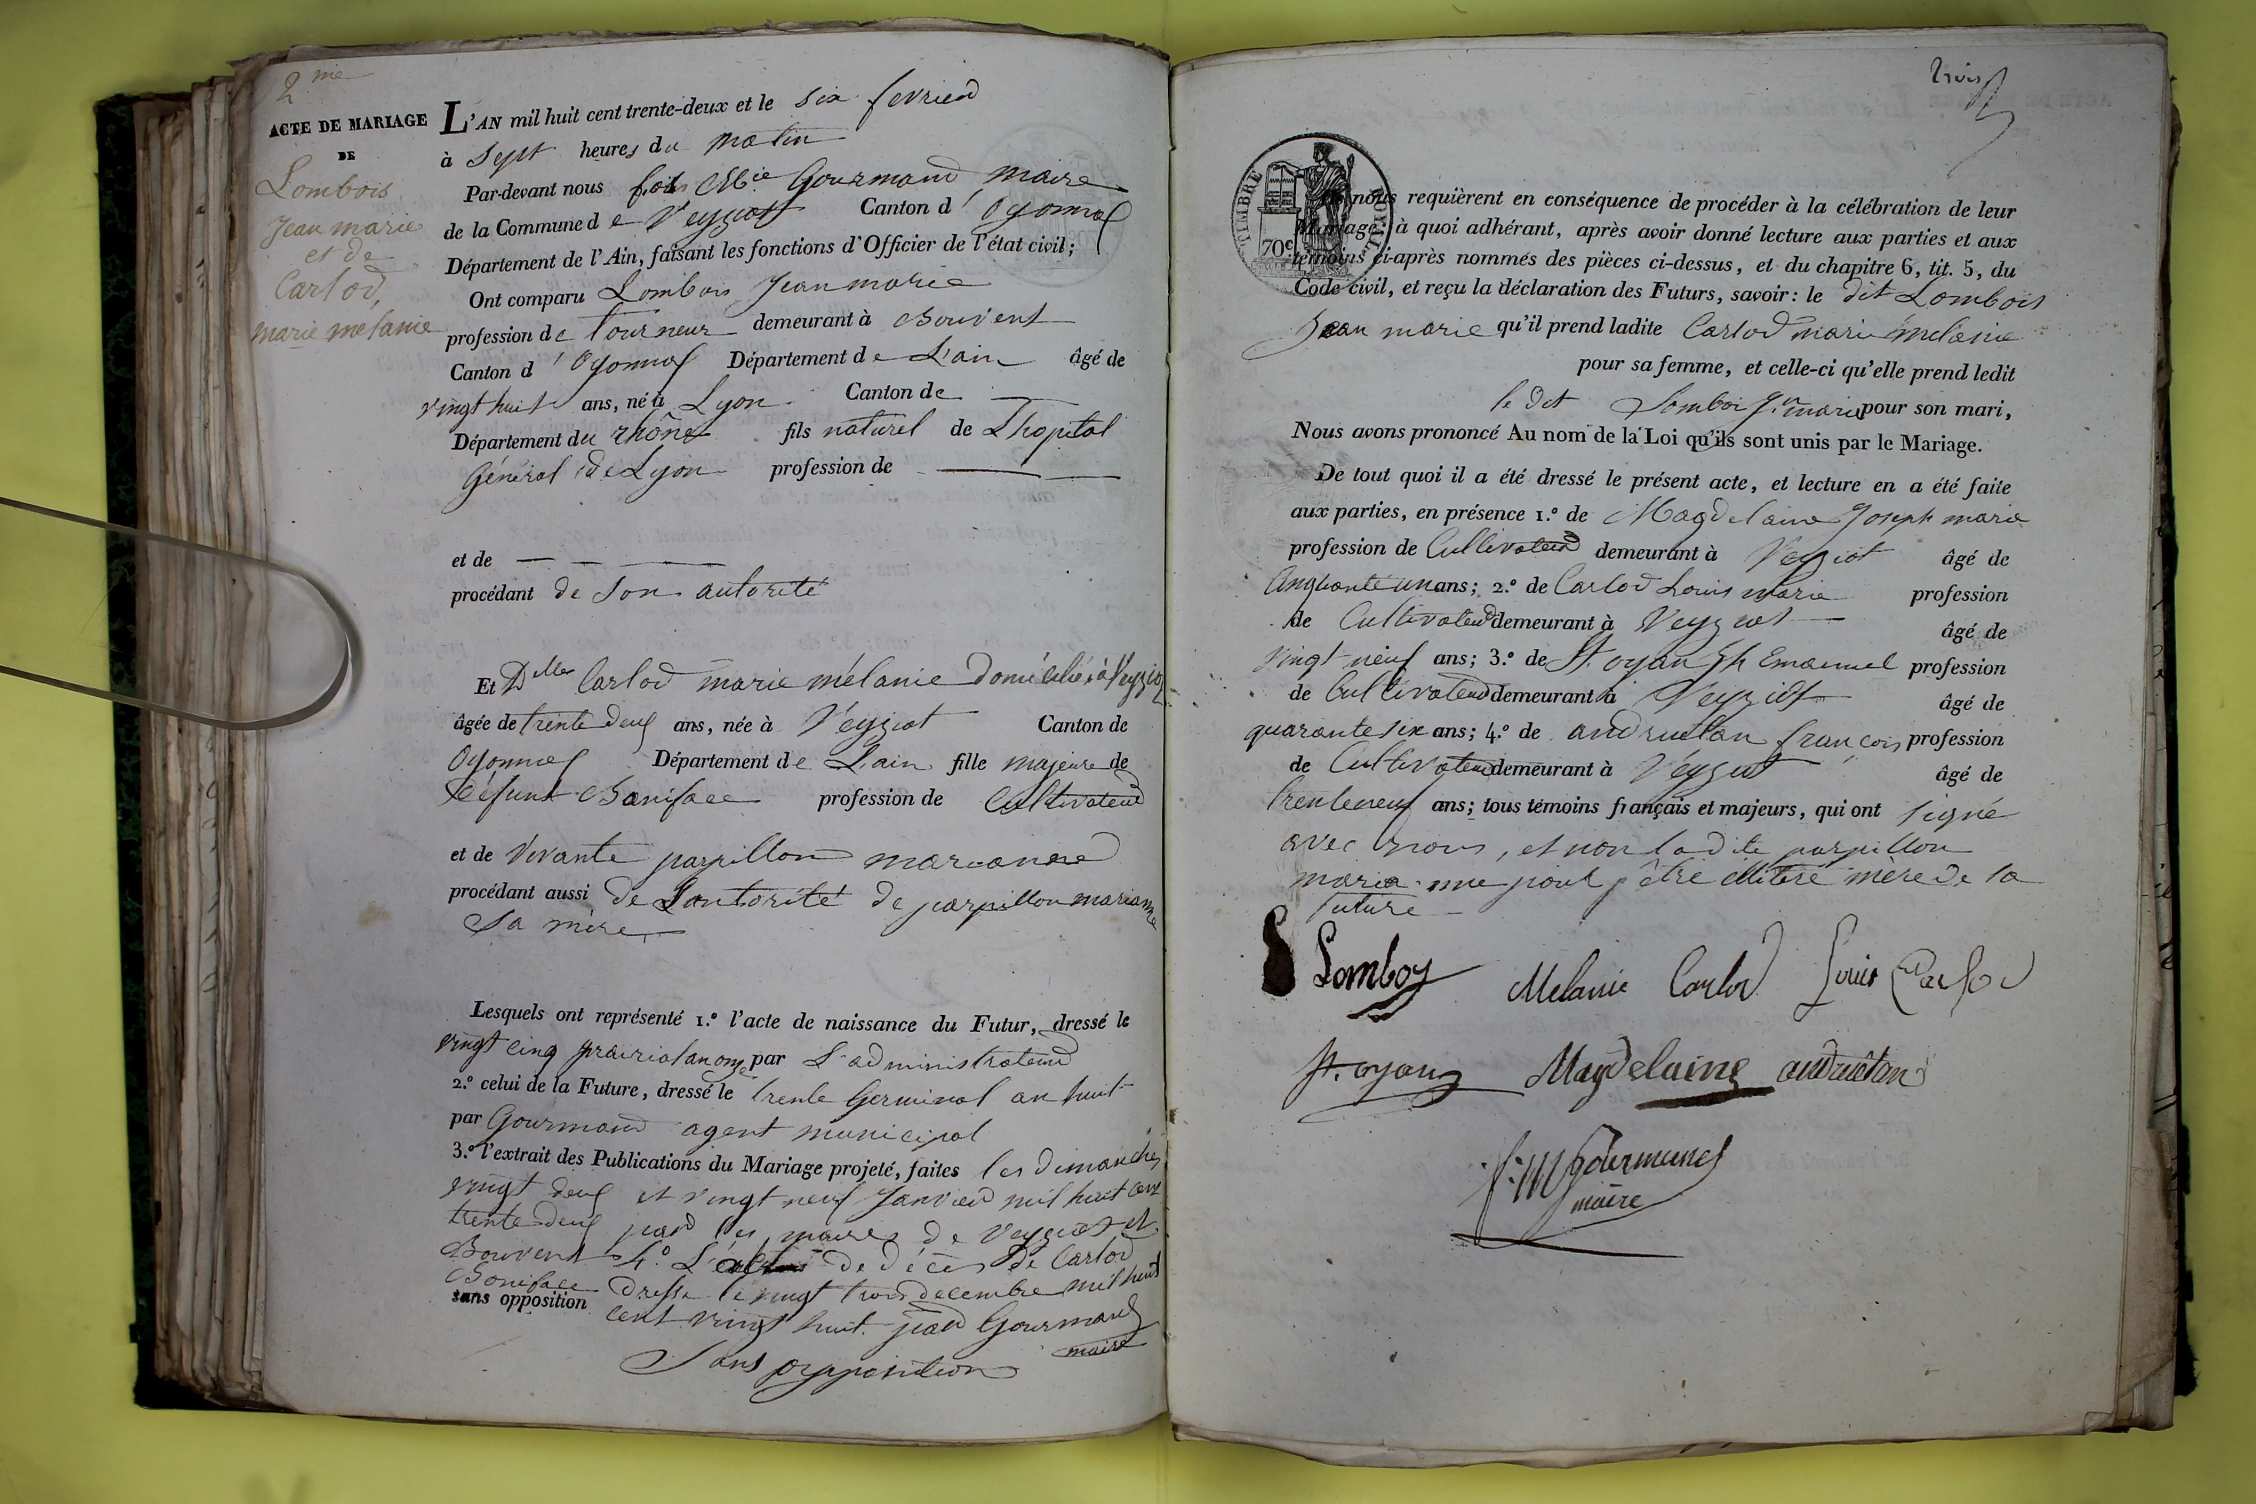 2me
ACTE DE MARIAGE
DE
Lombois
Jean marie
et de
Carlod,
marie melanie
L'AN mil huit cent trente-deux et le six fevrier
à Sept heures du matin
Par-devant nous Gourmand maire
de la Commune de Veyziat Canton d'Oyonnax
Département de l'Ain, faisant les fonctions d'Officier de l'état civil;
Ont comparu Lombois Jean marie
profession de tourneur demeurant à Bouvent
Canton d'Oyonnax Département de L'ain âgé de
vingt huit ans, né à Lyon Canton de
Département du rhône fils naturel de L'hopital
Général de Lyon profession de
et de
procédant de son autorité
Et Dlle Carlod marie mélanie domiciliée à Veyziat
âgée de trente deux ans, née à Veyziat Canton de
Oyonnax Département de L'ain fille majeure de
défunt Boniface profession de Cultivateur
et de vivante parpillon marianne
procédant aussi de L'autorité de parpillon marianne
Sa mère
Lesquels ont représenté 1.º l'acte de naissance du Futur, dressé le
vingt cinq prairial an onze par L'administrateur
2.º celui de la Future, dressé le trente Germinal an huit
par Gourmand agent municipal
3.º l'extrait des Publications du Mariage projeté, faites les dimanches
vingt deux et vingt neuf Janvier mil huit cent
trente deux par les maires de Veyziat et
Bouvent 4.º L'acte de décès de Carlod
Boniface dressé le vingt trois decembre mil huit
sans opposition cent vingt huit par Gourmand
maire
Sans opposition
trois
TIMBRE ROYAL
70c
nous requièrent en conséquence de procéder à la célébration de leur
Mariage; à quoi adhérant, après avoir donné lecture aux parties et aux
témoins ci-après nommés des pièces ci-dessus, et du chapitre 6, tit. 5, du
Code civil, et reçu la déclaration des Futurs, savoir: le dit Lombois
Jean marie qu'il prend ladite Carlod marie melanie
pour sa femme, et celle-ci qu'elle prend ledit
le dit Lombois Jn marie pour son mari,
Nous avons prononcé Au nom de la Loi qu'ils sont unis par le Mariage.
De tout quoi il a été dressé le présent acte, et lecture en a été faite
aux parties, en présence 1.º de Magdelaine Joseph marie
profession de Cultivateur demeurant à Veyziat âgé de
Cinquante un ans; 2.º de Carlod Louis marie profession
de Cultivateur demeurant à Veyziat âgé de
vingt neuf ans; 3.º de St. oyan Jh Emanuel profession
de Cultivateur demeurant à Veyziat âgé de
quarante six ans; 4.º de andruetan françois profession
de Cultivateur demeurant à Veyziat âgé de
trente neuf ans; tous témoins français et majeurs, qui ont signé
avec nous, et non ladite parpillon
marianne pour être illitéré mère de la
future
Lomboy Melanie Carlod Louis Carlod
St. oyan Magdelaine andruétan
f. M Gourmand
maire